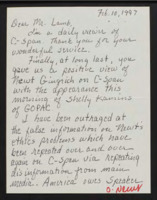 Feb. 10, 1997
Dear Mr. Lamb,
I'm a daily viewer of
C-Span. Thank you for your
wonderful service.
Finally, at long last, you
gave us a positive view of
Newt Gingrich on C-Span
with the appearance this
morning of Shelly Kamins
of GOPAC.
I have been outraged at
the false information on Newt's
ethics problems which have
been repeated over and over
again on C-Span via repeating
disinformation from main
media. America owes Speaker